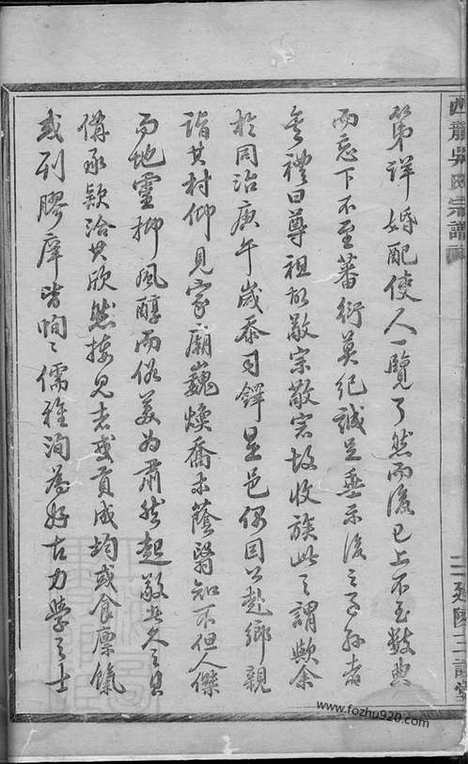 西龍吳氏宗譜
第詳婚配使人一覽了然而後已上不至數典
而忘下不至蕃衍莫紀誠足垂示後之子孫者
矣禮曰尊祖故敬宗敬宗故收族此之謂歟余
於同治庚午歲忝司鐸是邑偶因公赴鄉親
詣其村仰見家廟巍煥喬木蔭翳知不但人傑
而地靈抑風醇而俗美為肅然起敬者久之且
備承款洽其欣然接見者或貢成均或食廩餼
或列膠庠皆恂〻儒雅洵為好古力學之士
二 延陵三讓堂
www.fozhu920.com